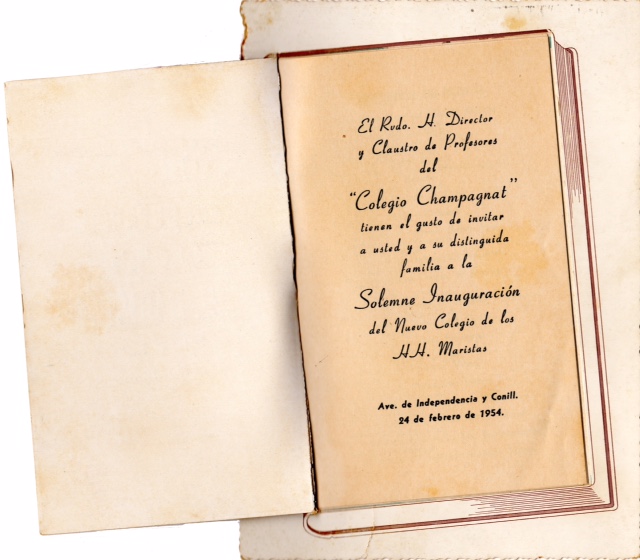 El Rvdo. H. Director
y Claustro de Profesores
del
“Colegio Champagnat”
tienen el gusto de invitar
a usted y a su distinguida
familia a la
Solemne Inauguración
del Nuevo Colegio de los
HH. Maristas
Ave. de Independencia y Conill.
24 de febrero de 1954.